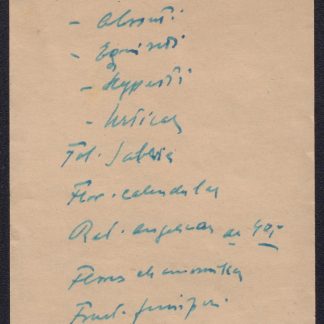 - Absinti
- Equiseti
- Hyperici
- Urticae
Fol. Salvia
Flor. calendulae
Rad. angelicae aa 40,-
Flores chamomillae
Fruct. juniperi